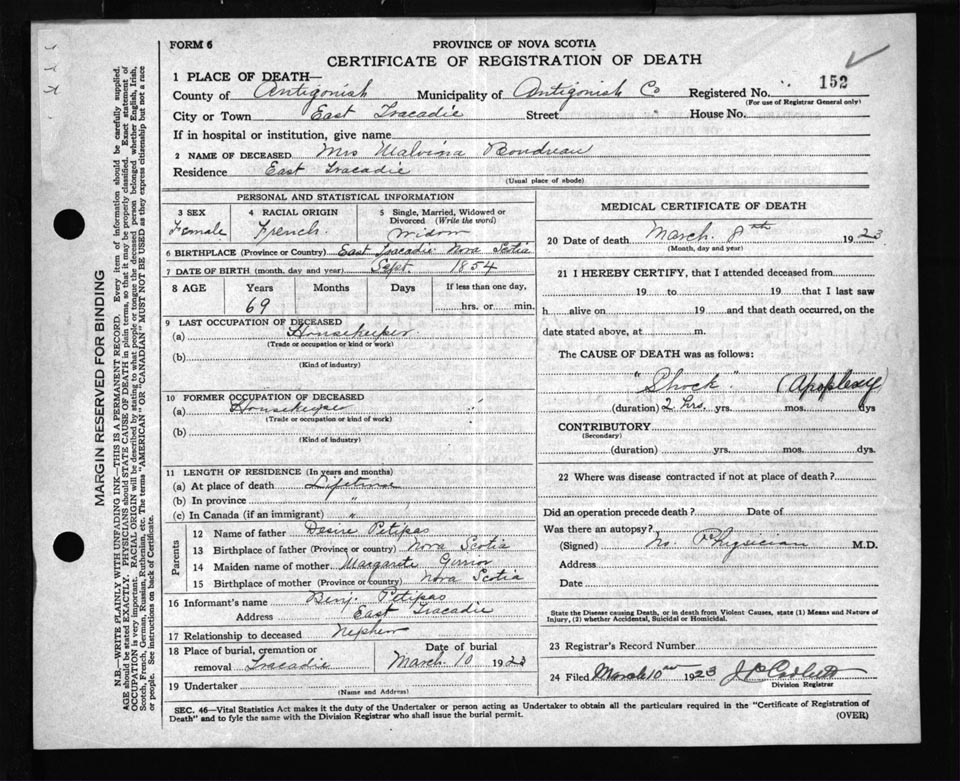 FORM 6
PROVINCE OF NOVA SCOTIA
CERTIFICATE OF REGISTRATION OF DEATH
1 PLACE OF DEATH—
County of Antigonish Municipality of Antigonish Co Registered No. 152
(For use of Registrar General only)
City or Town East Tracadie Street House No.
If in hospital or institution, give name
2 NAME OF DECEASED Mrs Malvina Boudreau
Residence East Tracadie
(Usual place of abode)
PERSONAL AND STATISTICAL INFORMATION
3 SEX
Female
4 RACIAL ORIGIN
French
5 Single, Married, Widowed or
Divorced (Write the word)
Widow
6 BIRTHPLACE (Province or Country) East Tracadie Nova Scotia
7 DATE OF BIRTH (month, day and year) Sept. 1854
8 AGE Years Months Days If less than one day,
69 hrs. or min.
9 LAST OCCUPATION OF DECEASED
(a) Housekeeper
(Trade or occupation or kind or work)
(b)
(Kind of industry)
10 FORMER OCCUPATION OF DECEASED
(a) Housekeeper
(Trade or occupation or kind or work)
(b)
(Kind of industry)
11 LENGTH OF RESIDENCE (In years and months)
(a) At place of death Lifetime
(b) In province "
(c) In Canada (if an immigrant) "
Parents
12 Name of father Desire Petipas
13 Birthplace of father (Province or country) Nova Scotia
14 Maiden name of mother Margarite
15 Birthplace of mother (Province or country) Nova Scotia
16 Informant's name Benj. Petipas
Address East Tracadie
17 Relationship to deceased Nephew
18 Place of burial, cremation or
removal Tracadie
Date of burial
March 10 1923
19 Undertaker
(Name and Address)
MEDICAL CERTIFICATE OF DEATH
20 Date of death March 8th 1923
(Month, day and year)
21 I HEREBY CERTIFY, that I attended deceased from
19 to 19 that I last saw
h alive on 19 and that death occurred, on the
date stated above, at m.
The CAUSE OF DEATH was as follows:
"Shock" (Apoplexy)
(duration) 2 hrs. yrs. mos. dys
CONTRIBUTORY
(Secondary)
(duration) yrs. mos. dys.
22 Where was disease contracted if not at place of death?
Did an operation precede death? Date of
Was there an autopsy?
(Signed) No. Physician M.D.
Address
Date
State the Disease causing Death, or in death from Violent Causes, state (1) Means and Nature of
Injury, (2) whether Accidental, Suicidal or Homicidal.
23 Registrar's Record Number
24 Filed March 10 1923
Division Registrar
SEC. 46—Vital Statistics Act makes it the duty of the Undertaker or person acting as Undertaker to obtain all the particulars required in the "Certificate of Registration of
Death" and to fyle the same with the Division Registrar who shall issue the burial permit.
(OVER)
MARGIN RESERVED FOR BINDING
N.B.—WRITE PLAINLY WITH UNFADING INK—THIS IS A PERMANENT RECORD. Every item of information should be carefully supplied.
AGE should be stated EXACTLY. PHYSICIANS should STATE CAUSE OF DEATH in plain terms, so that it may be properly classified. Exact statement of
OCCUPATION is very important. RACIAL ORIGIN will be described by stating to what people or tongue the deceased person belonged whether English, Irish,
Scotch, French, German, Russian, Ruthenian, etc. The terms "AMERICAN" OR "CANADIAN" MUST NOT BE USED as they express citizenship but not a race
or people. See instructions on back of Certificate.